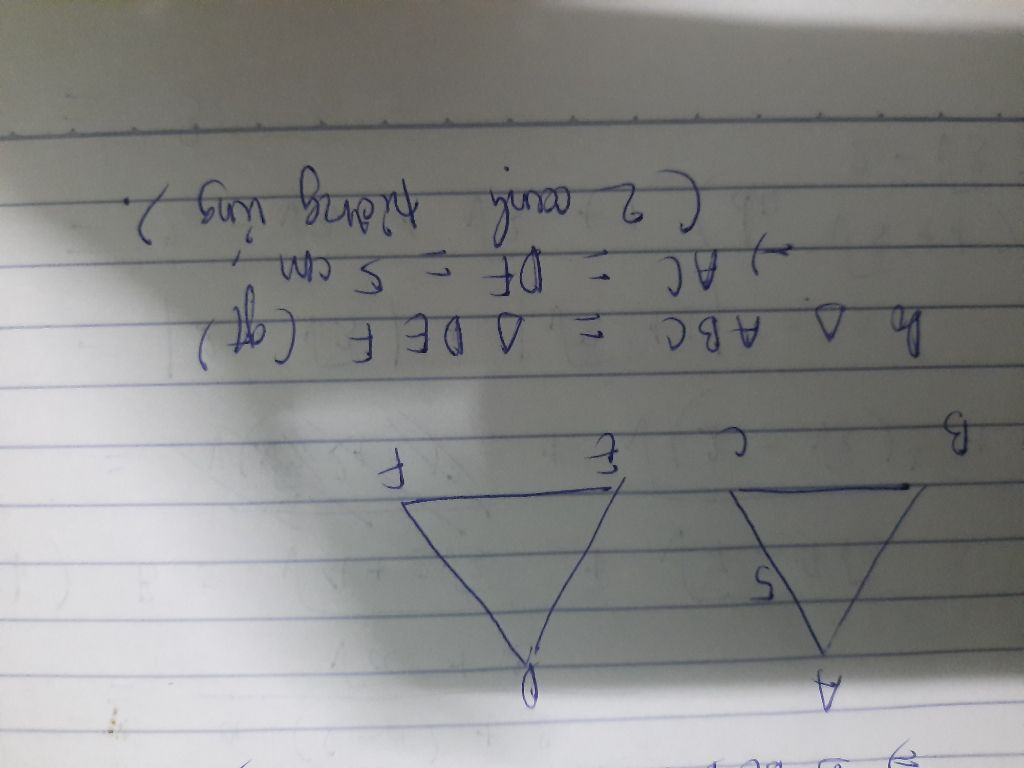 A D
5
B C E F
Δ ABC = Δ DEF (gt)
→ AC = DF = 5 cm,
(2 cạnh tương ứng).